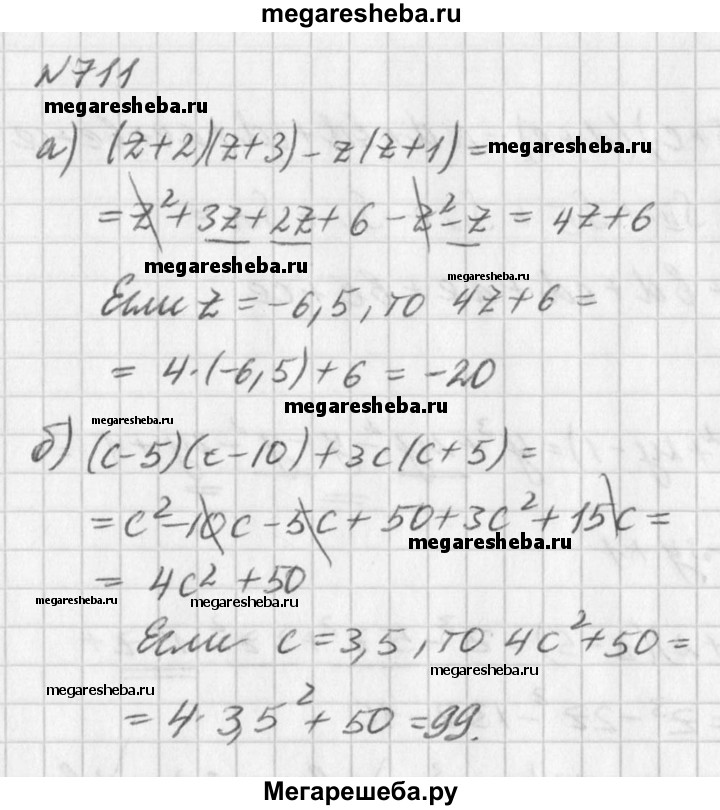 megaresheba.ru
№711
megaresheba.ru
а) (z+2)(z+3) - z(z+1) = megaresheba.ru
= z² + 3z + 2z + 6 - z² - z = 4z + 6
megaresheba.ru megaresheba.ru
Если z = -6,5, то 4z + 6 =
= 4·(-6,5) + 6 = -20
megaresheba.ru megaresheba.ru
б) (c-5)(c-10) + 3c(c+5) =
= c² - 10c - 5c + 50 + 3c² + 15c =
megaresheba.ru
= 4c² + 50
megaresheba.ru megaresheba.ru
Если c = 3,5, то 4c² + 50 =
megaresheba.ru
megaresheba.ru
= 4·3,5² + 50 = 99.
Мегарешеба.ру